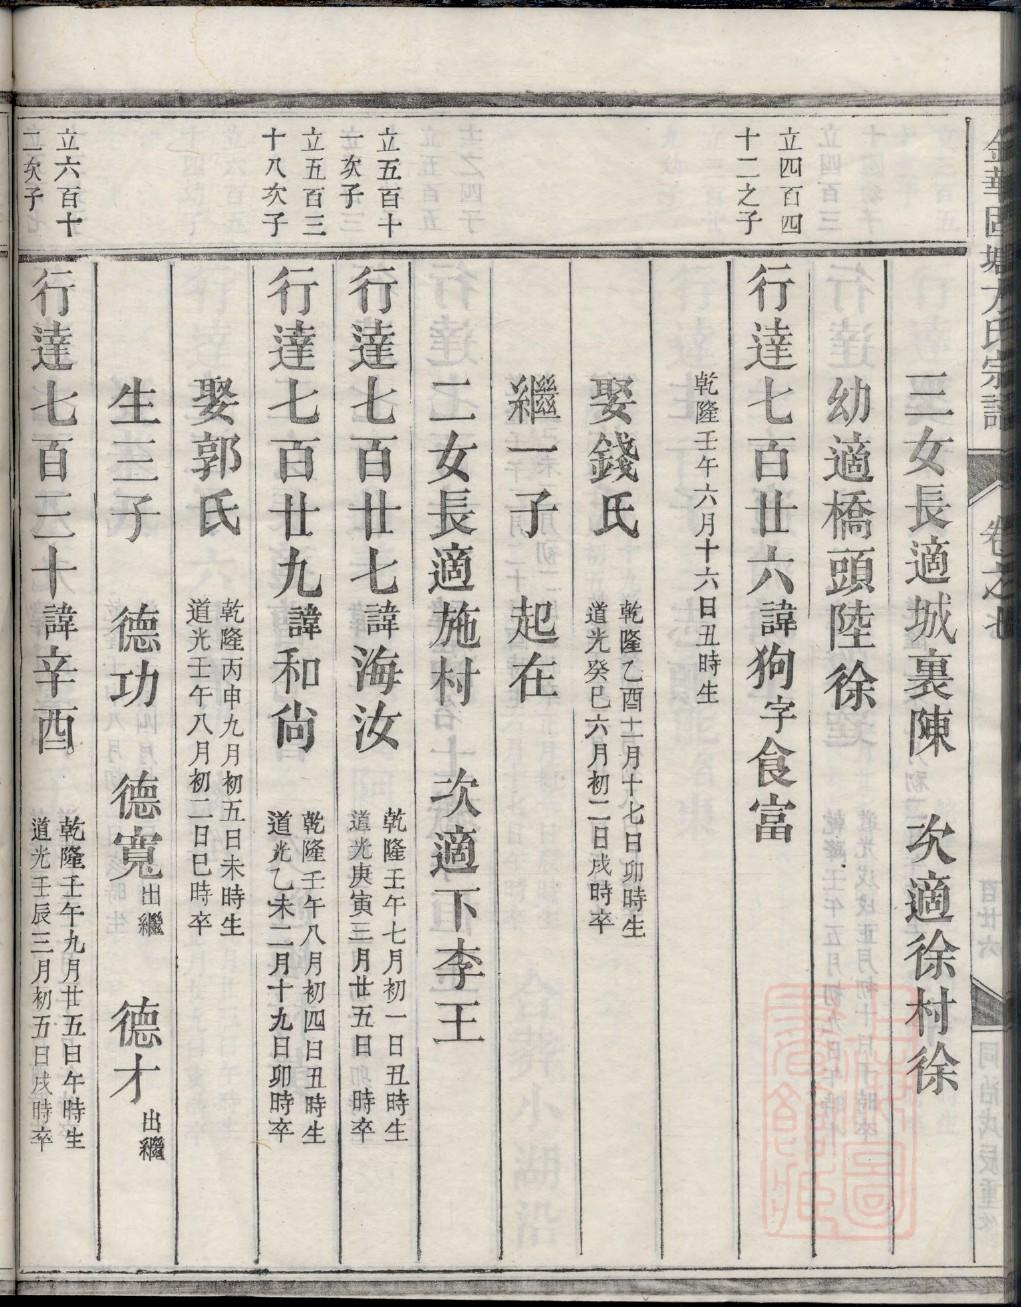 金華固塘方氏宗譜
卷之七
三女長適城裏陳　次適徐村徐
幼適橋頭陸徐
立四百四
十二之子
行達七百廿六諱狗字食富
乾隆壬午六月十六日丑時生
娶錢氏
乾隆乙酉十一月十七日卯時生
道光癸巳六月初二日戌時卒
繼一子　起在
二女長適施村　次適下李王
立五百十
立次子
行達七百廿七諱海汝
乾隆壬午七月初一日丑時生
道光庚寅三月廿五日　時卒
立五百三
十八次子
行達七百廿九諱和尙
乾隆壬午八月初四日丑時生
道光乙未二月十九日卯時卒
娶郭氏
乾隆丙申九月初五日未時生
道光壬午八月初二日巳時卒
生三子　德功　德寬出繼　德才出繼
立六百十
二次子
行達七百三十諱辛酉
乾隆壬午九月廿五日午時生
道光壬辰三月初五日戌時卒